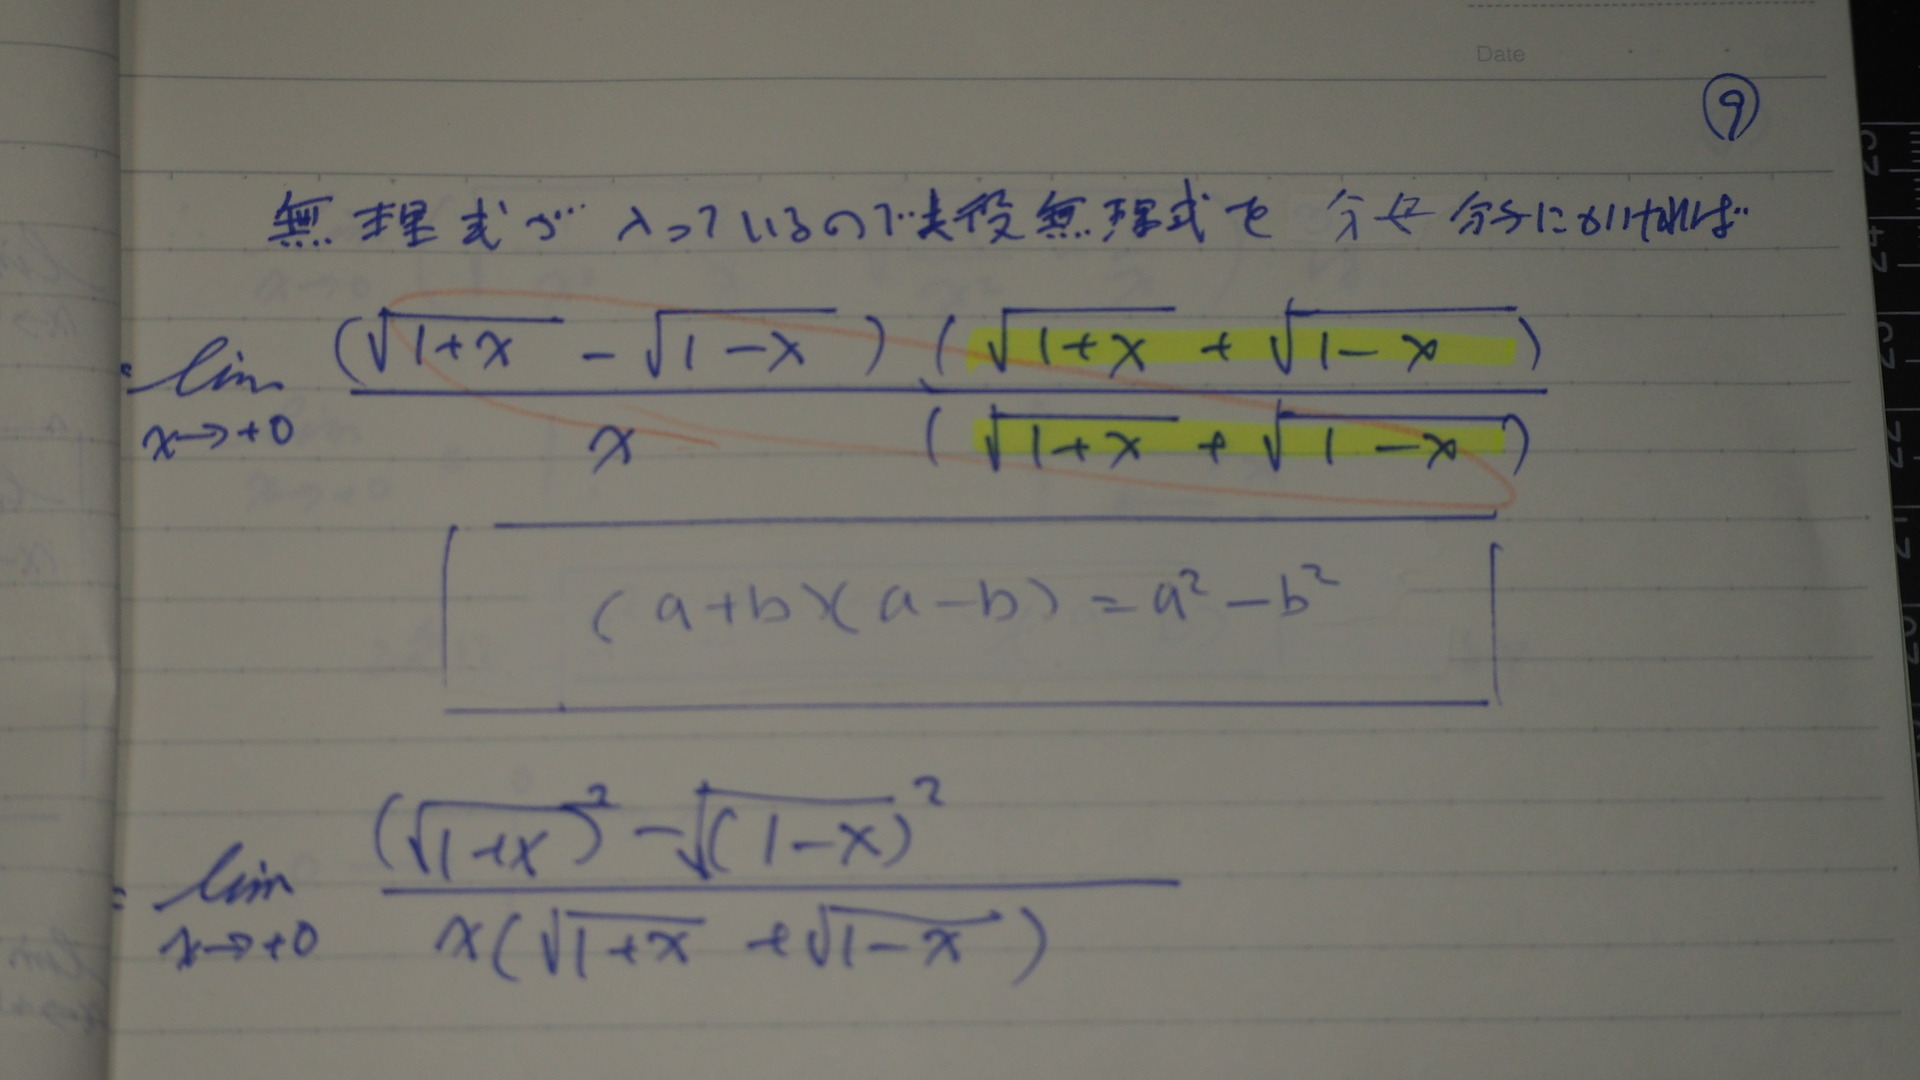 Date
⑨
無理式が入っているので共役無理式を分母分子にかければ
= lim x→+0 (√1+x - √1-x)(√1+x + √1-x) / x (√1+x + √1-x)
(a+b)(a-b) = a² - b²
= lim x→+0 (√1+x)² - √(1-x)² / x(√1+x + √1-x)